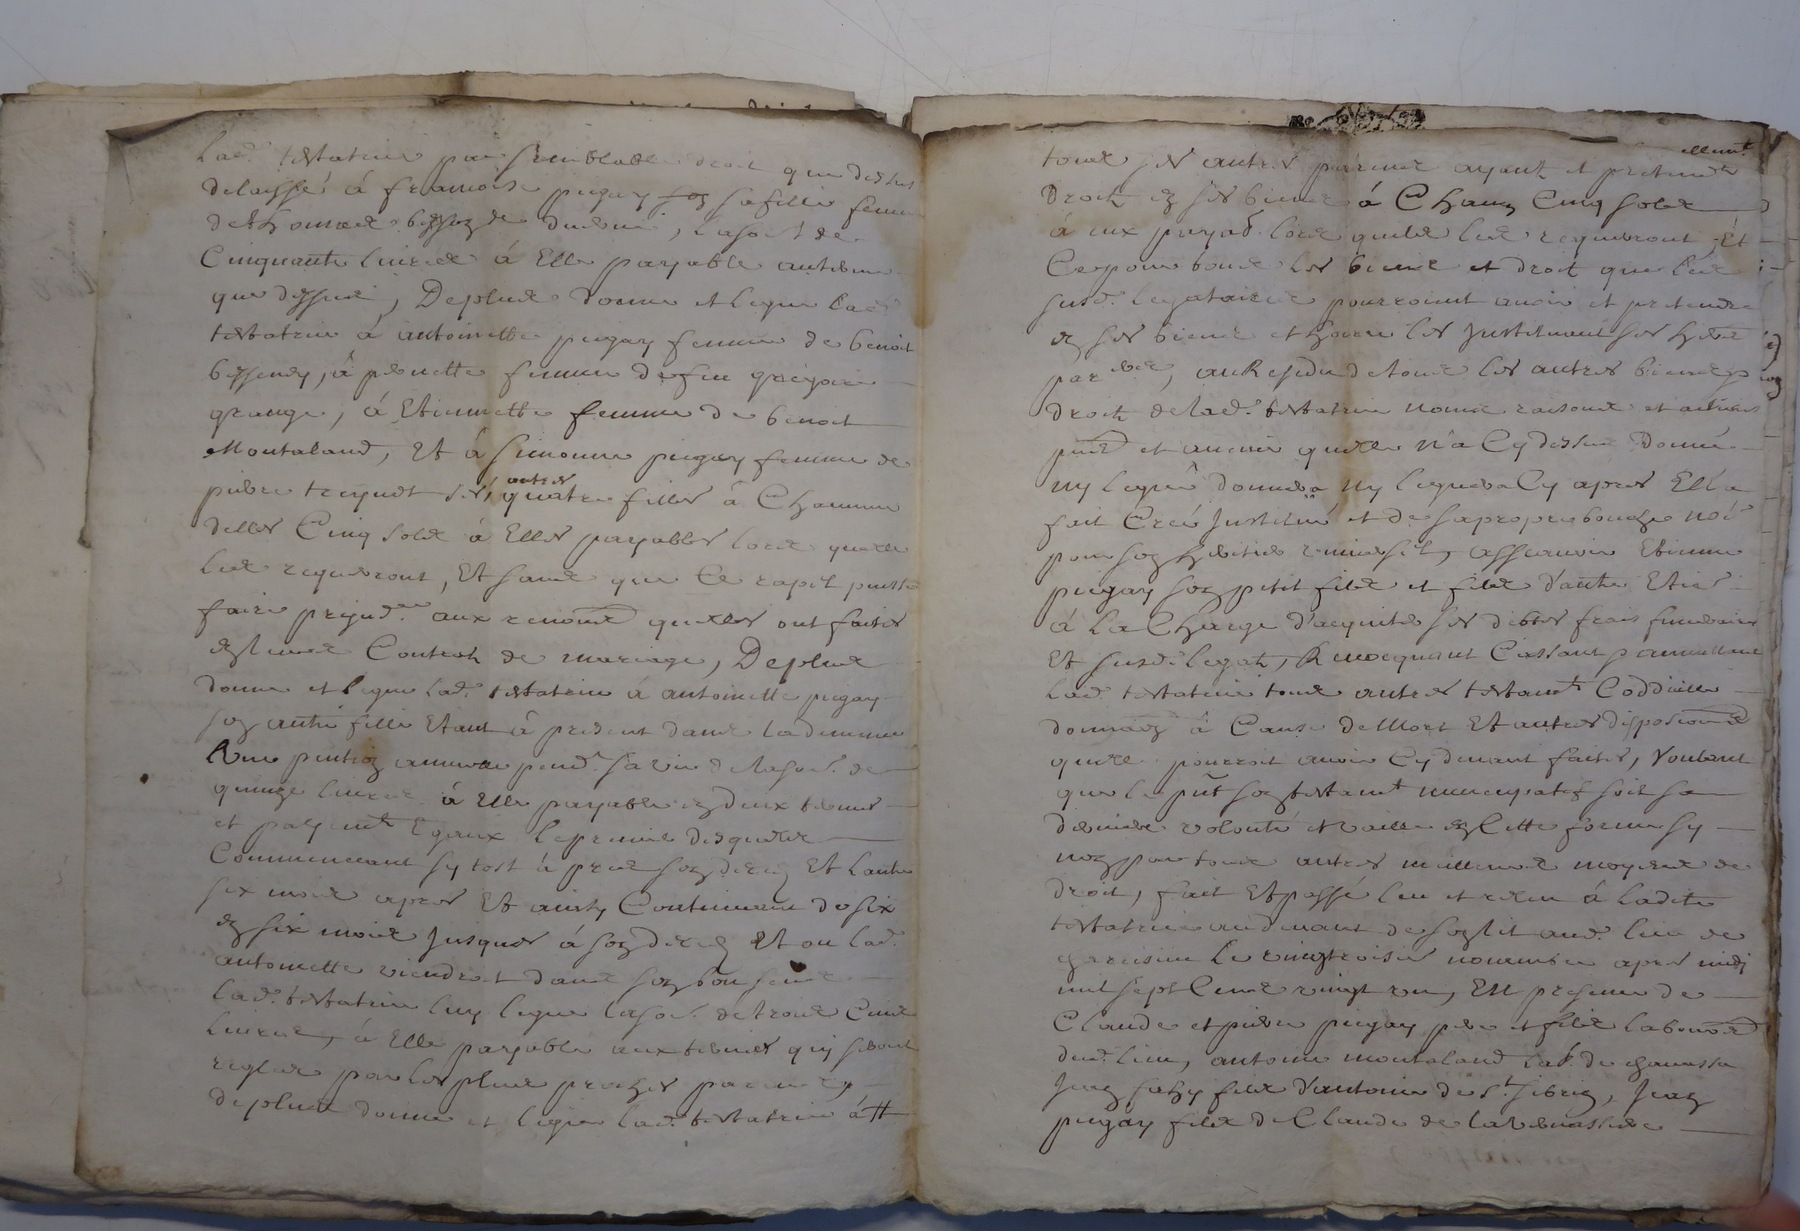 lad. testatrice par semblable droit que dessus
delaissé à francoise pugay soz sa fille femme
de Thomas bessoz de duerne, la so.e de
Cinquante livres à Elle payable au terme
que dessus, De plus donne et legue lad.
testatrice à antoinette pugay femme de benoit
bessenay, à pernette femme de feu gregoire
grange, à Etiennette femme de benoit
Montaland, Et à Simonne pugay femme de
pierre ses autres quatre filles à Chacune
delles Cinq sols à Elles payables lors quelles
les requerront, Et sans que Ce puisse
faire prejud.e aux renon.ons quelles ont faites
ez leurs Contrats de mariage, De plus
donne et legue lad. testatrice à antoinette pugay
soz autre fille Etant à present dans la demence
Une pention annuelle pend.t sa vie de la so.e de
quinze livres à Elle payable ez deux termes
et payem.ts Egaux le premier desquels
Commencera sy tost à pres soz decez Et lautre
six mois apres Et ainsy Continuera de six
ez six mois Jusques à soz decez Et ou lad.
antoinette viendroit dans soz bon sens
lad. testatrice luy legue la so.e de trois Cens
livres, à Elle payable aux termes quy seront
reglés par les plus proches parens,
de plus donne et legue lad. testatrice à #
tous ses autres parens ayant et pretend.t
droit ez ses biens à Chacun Cinq sols
à eux payab. lors quils les requerront Et
Ce pour tous les biens et droit que les
susd. legataires pourroient avoir et pretendre
ez ses biens et hoirie les Instituant ses her.s
par.ers, au Residu de tous les autres biens
droit de lad. testatrice noms raisons et actions
pn.t et avenir quelle n'a Cy dessus donné
ny legué donnera ny leguera Cy apres Elle a
fait Creé Institué et de sa propre bouche no.é
pour soz heritier universel, assçavoir Etienne
pugay soz petit fils et fils d'autre Etie.
à La Charge d'acquiter ses debtes frais funeraires
Et susd. legats, Revocquant Cassant annullant
lad. testatrice tous autres testam.ts Coddicilles
donna.ons à Cause de Mort Et autres disposi.ons
quelle pourroit avoir Cy devant faites, Voulant
que le pñt soz testam.t nuncupatif soit sa
derniere volonté et vaille ez Cette forme sy
noz par tous autres meilleurs moyens de
droit, fait Et passé leu et releu à ladite
testatrice audevant de soz lit aud. lieu de
le vingtroisie. novembre apres midy
mil sept Cens vingt un, En presence de
Claude et pierre pugay pere et fils laboureurs
dud. lieu, antoine montaland lab. de
Jean fils d'antoine de S.t Jean
pugay fils de Claude de